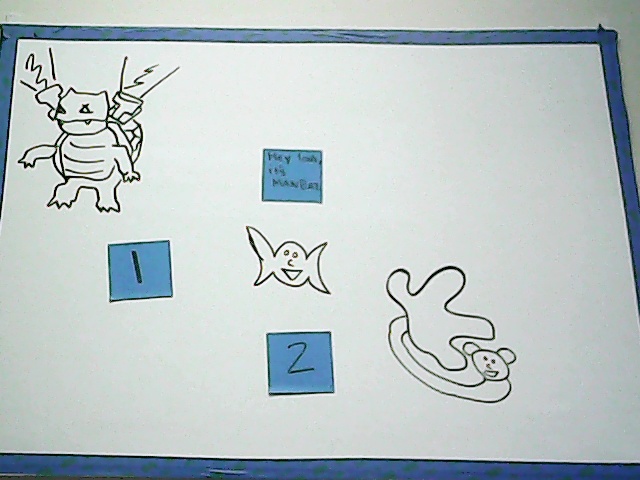 Hey look,
it's
MANBAT
1
2